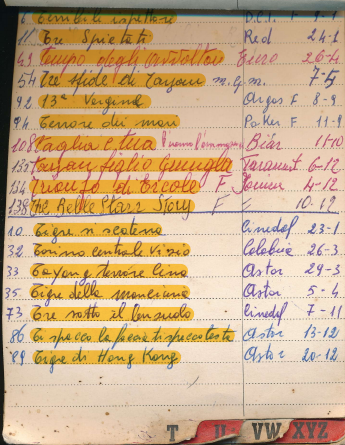 6 Terribile ispettore D.C.I. F 9-1
11 Tre Spietati Red 24-1
49 Tempo degli avvoltoi Euro 26-4
54 Tre sfide di Tarzan M.G.M. 7-5
92 13ª Vergine Argos F 8-9
94 Terrore dei mari Parker F 11-9
108 Taglia è tua l'uomo l' Biar 11-10
132 Tarzan figlio giungla Paramount 6-12
134 Trionfo di Ercole F 4-12
138 The Belle Starr Story F 10-12
10 Tigre si scatena Cinedal 23-1
32 Torino centrale vizio Colobria 26-3
33 Toyong terrore Cina Astor 29-3
35 Tigre della Manciuria Astor 5-4
73 Tre sotto il lenzuolo Cinedaf 7-11
86 Ti spacco la faccia ti spacco testa Astor 13-12
89 Tigre di Hong Kong Astor 20-12
T U VW XYZ